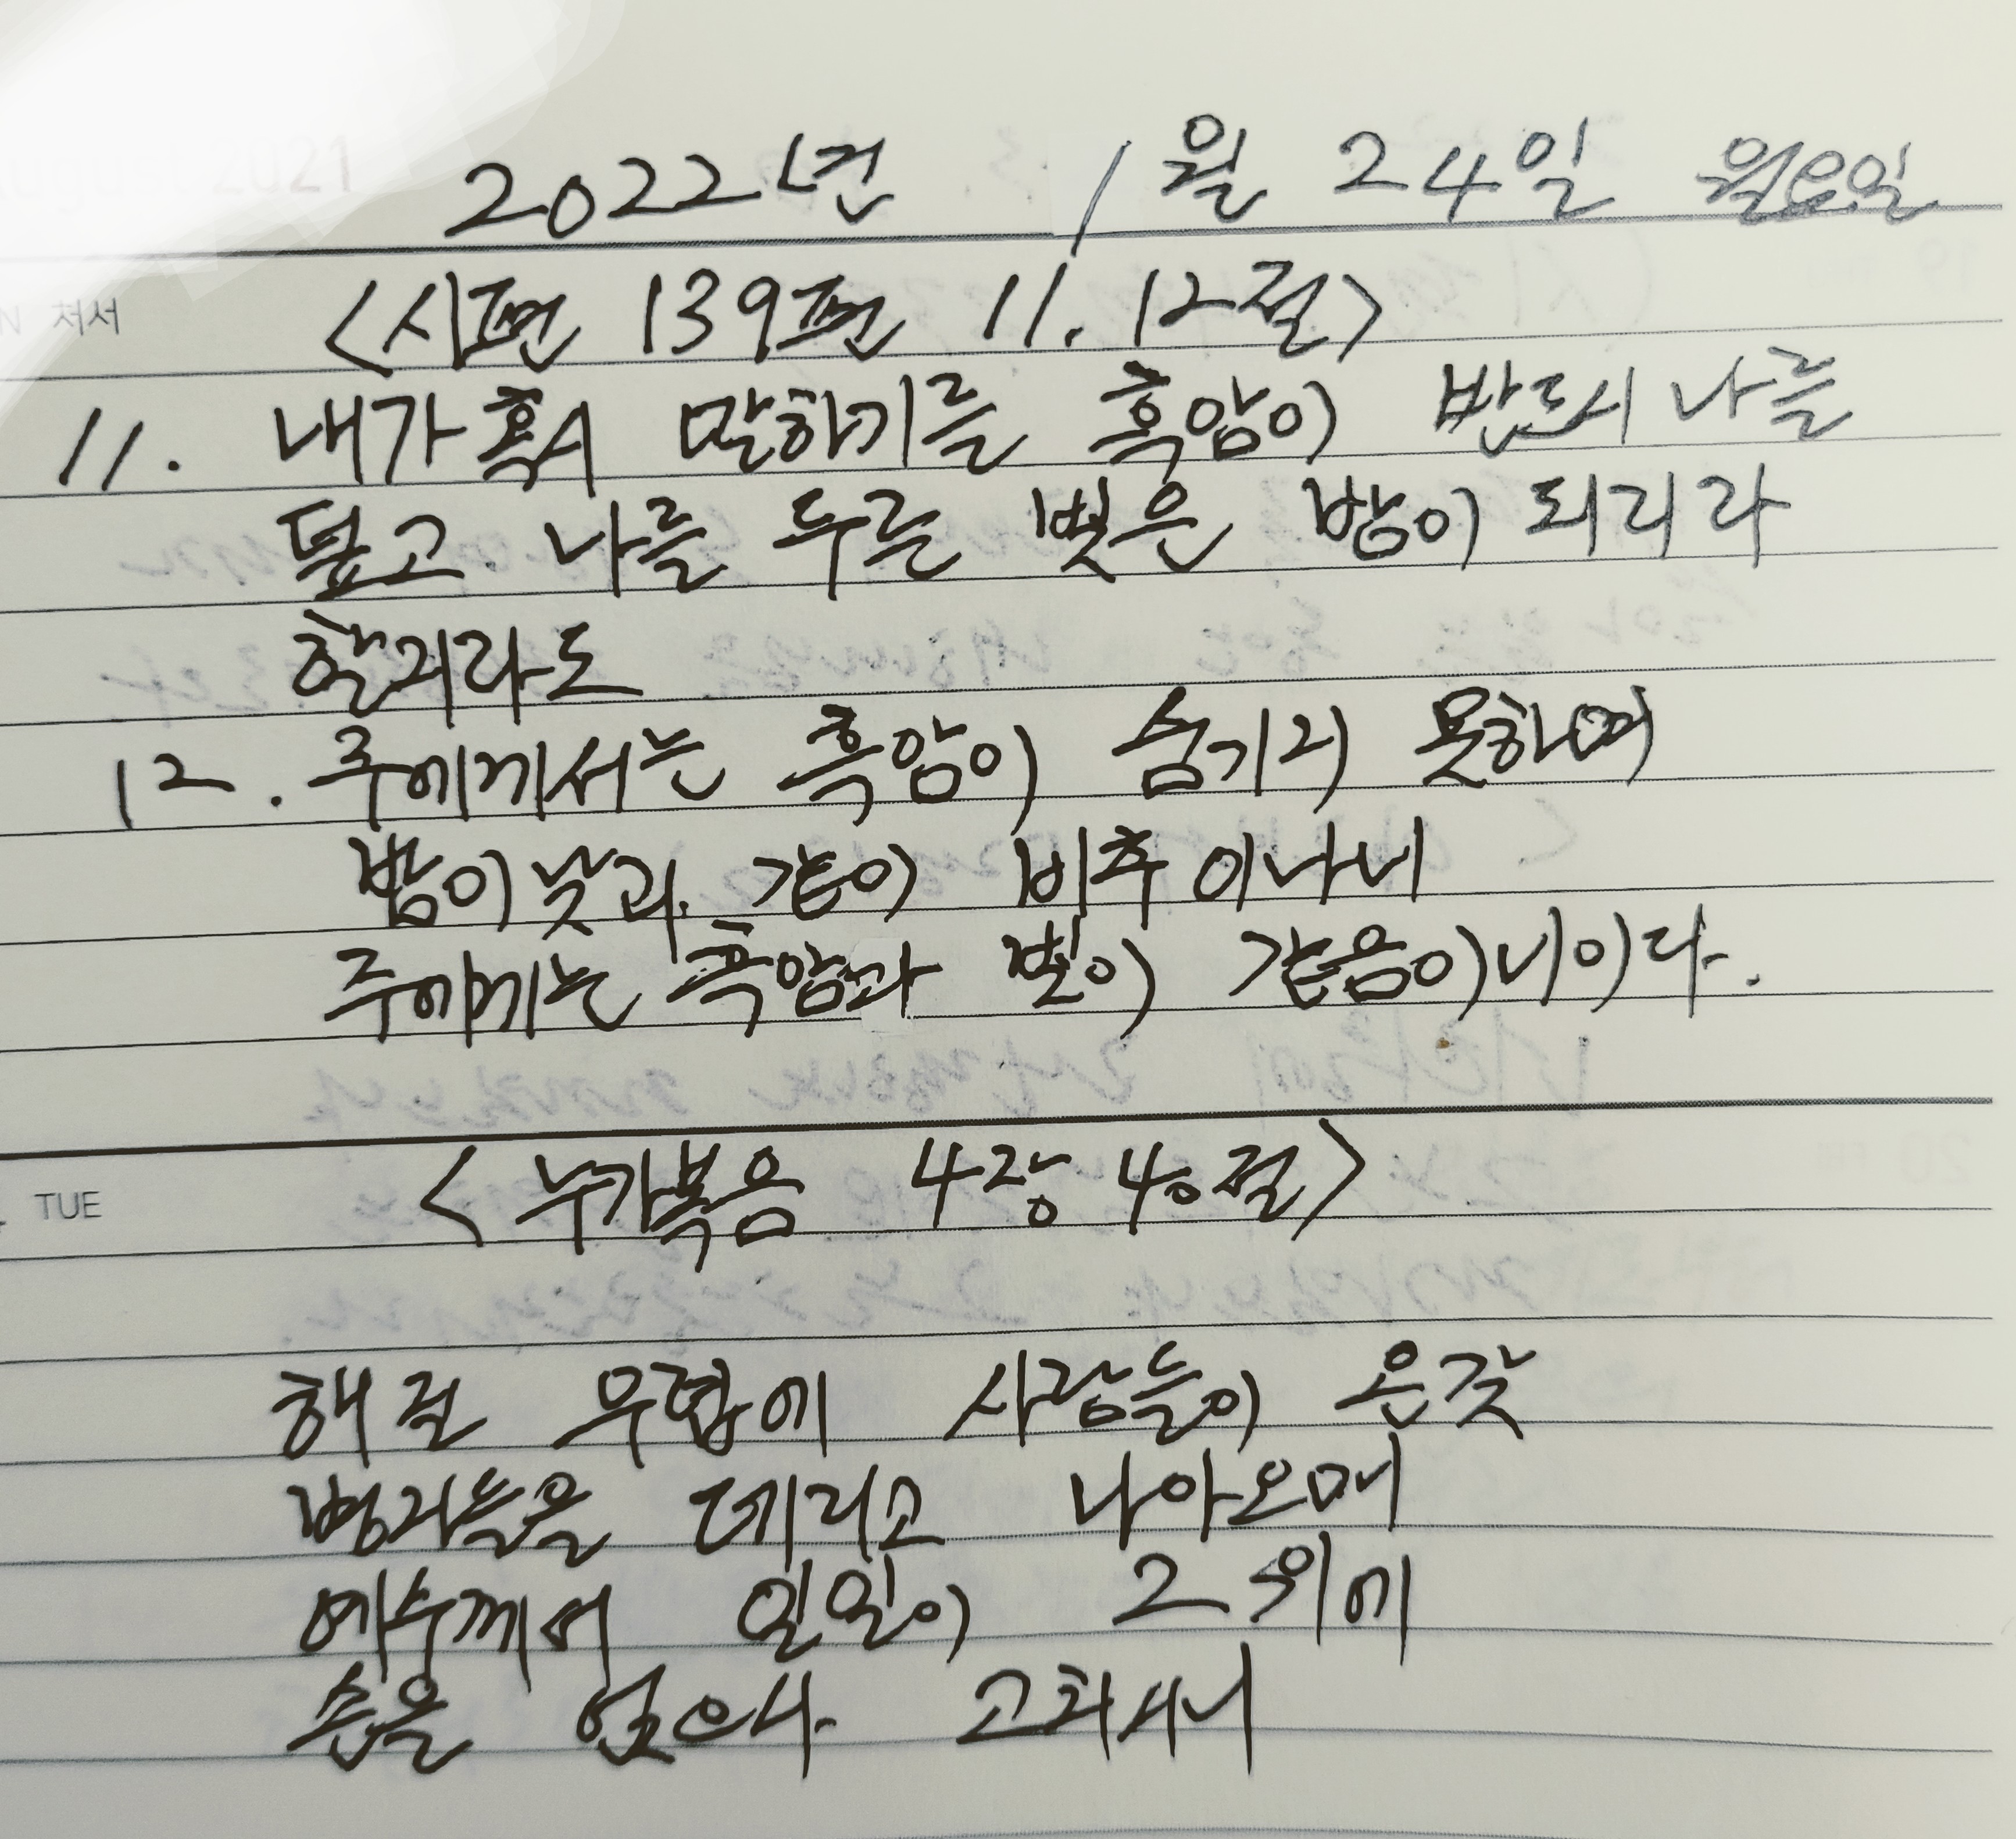 August 2021
2022년 1월 24일 월요일
처서
<시편 139편 11. 12절>
11. 내가 혹시 말하기를 흑암이 반드시 나를
덮고 나를 두른 빛은 밤이 되리라
할지라도
12. 주에게서는 흑암이 숨기지 못하며
밤이 낮과 같이 비추이나니
주에게는 흑암과 빛이 같음이니이다.
<누가복음 4장 40절>
TUE
해 질 무렵에 사람들이 온갖
병자들을 데리고 나아오매
예수께서 일일이 그 위에
손을 얹으사 고치시니